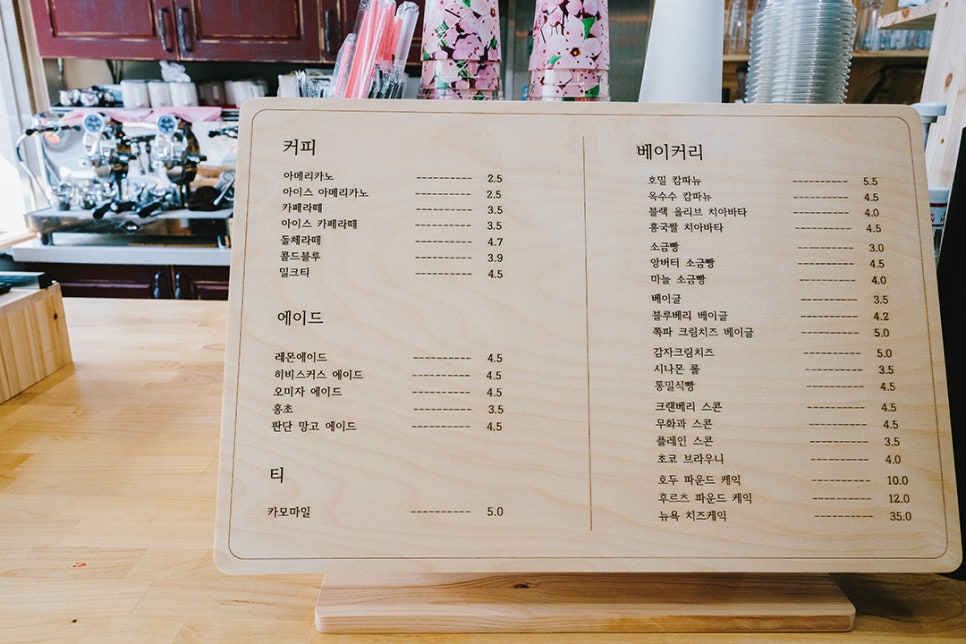 커피
아메리카노 ---------- 2.5
아이스 아메리카노 ---------- 2.5
카페라떼 ---------- 3.5
아이스 카페라떼 ---------- 3.5
돌체라떼 ---------- 4.7
콜드브루 ---------- 3.9
밀크티 ---------- 4.5
에이드
레몬에이드 ---------- 4.5
히비스커스 에이드 ---------- 4.5
오미자 에이드 ---------- 4.5
홍초 ---------- 3.5
판단 망고 에이드 ---------- 4.5
티
카모마일 ---------- 5.0
베이커리
호밀 캄파뉴 ---------- 5.5
옥수수 캄파뉴 ---------- 4.5
블랙 올리브 치아바타 ---------- 4.0
홍국쌀 치아바타 ---------- 4.5
소금빵 ---------- 3.0
앙버터 소금빵 ---------- 4.5
마늘 소금빵 ---------- 4.0
베이글 ---------- 3.5
블루베리 베이글 ---------- 4.2
쪽파 크림치즈 베이글 ---------- 5.0
감자크림치즈 ---------- 5.0
시나몬 롤 ---------- 3.5
통밀식빵 ---------- 4.5
크랜베리 스콘 ---------- 4.5
무화과 스콘 ---------- 4.5
플레인 스콘 ---------- 3.5
초코 브라우니 ---------- 4.0
호두 파운드 케익 ---------- 10.0
후르츠 파운드 케익 ---------- 12.0
뉴욕 치즈케익 ---------- 35.0